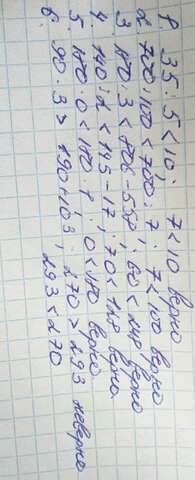 1. 35 : 5 < 10; 7 < 10 верно
2. 700 : 100 < 700 : 7; 7 < 100 верно
3. 180 : 3 < 806 - 558; 60 < 248 верно
4. 140 : 2 < 145 - 17; 70 < 128 верно
5. 180 · 0 < 180 · 1; 0 < 180 верно
6. 90 · 3 > 190 + 103; 270 > 293 неверно
293 < 270